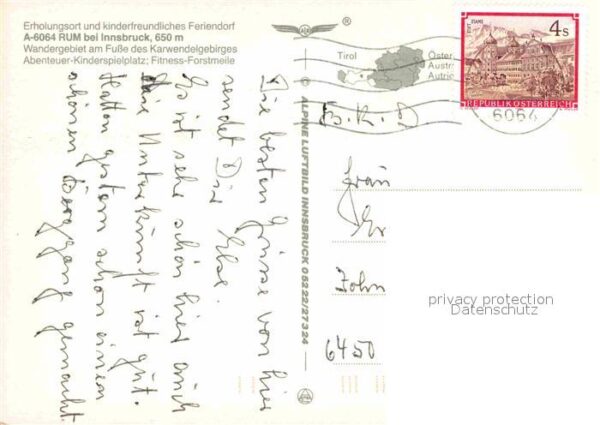 Erholungsort und kinderfreundliches Feriendorf
A-6064 RUM bei Innsbruck, 650 m
Wandergebiet am Fuße des Karwendelgebirges
Abenteuer-Kinderspielplatz; Fitness-Forstmeile
Die besten Grüsse von hier
sendet Dir Else.
Es ist sehr schön hier auch
die Unterkunft ist gut.
Hatten gestern schon einen
schönen Berggang gemacht.
© ALPINE LUFTBILD INNSBRUCK 05222/27324
®
Tirol
Öster
Austr
Autric
STIFT STAMS
4 S
REPUBLIK ÖSTERREICH
6064
B.R.D
Frau
Er
John
6450
privacy protection
Datenschutz